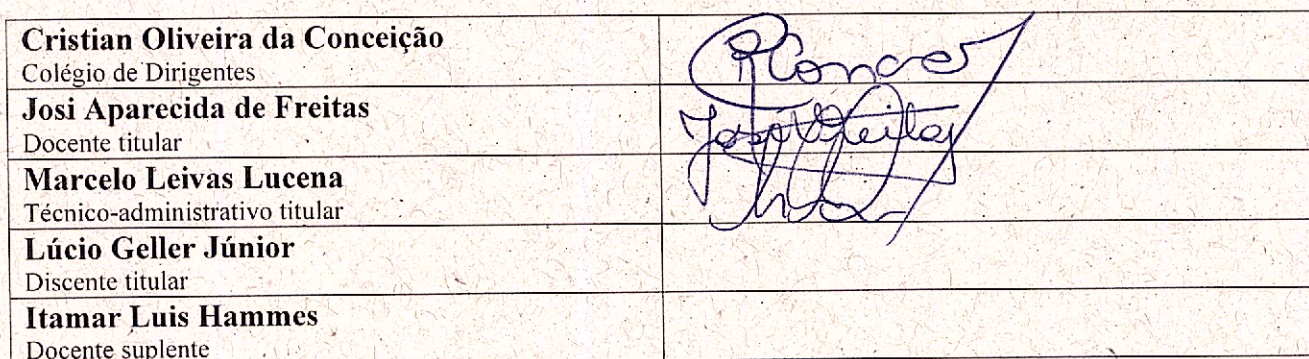 Cristian Oliveira da Conceição
Colégio de Dirigentes
Josi Aparecida de Freitas
Docente titular
Marcelo Leivas Lucena
Técnico-administrativo titular
Lúcio Geller Júnior
Discente titular
Itamar Luis Hammes
Docente suplente